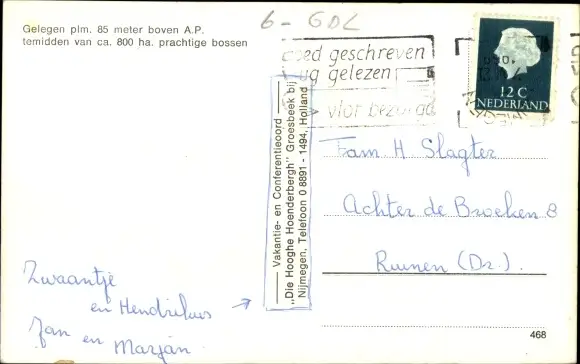 Gelegen plm. 85 meter boven A.P.
temidden van ca. 800 ha. prachtige bossen
6 - GDL
goed geschreven
vlug gelezen
vlot bezorgd
12 C
NEDERLAND
Vakantie- en Conferentieoord
„Die Hooghe Hoenderbergh" Groesbeek bij
Nijmegen, Telefoon 0 8891 - 1494, Holland
Fam H Slagter
Achter de Broeken 8
Ruinen (Dr.).
Zwaantje
en Hendrikus
Jan en Marjan
468